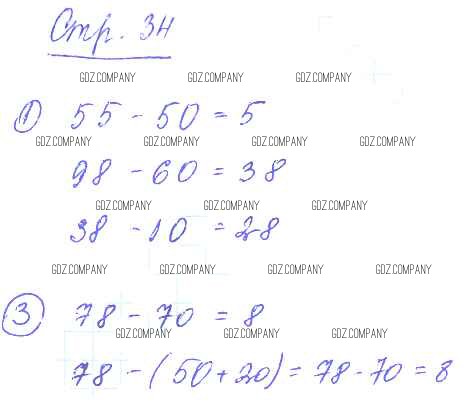 Стр. 34
GDZ.COMPANY GDZ.COMPANY GDZ.COMPANY
① 55 - 50 = 5
GDZ.COMPANY GDZ.COMPANY GDZ.COMPANY GDZ.COMPANY
98 - 60 = 38
GDZ.COMPANY GDZ.COMPANY GDZ.COMPANY
38 - 10 = 28
GDZ.COMPANY GDZ.COMPANY GDZ.COMPANY GDZ.COMPANY
③ 78 - 70 = 8
GDZ.COMPANY GDZ.COMPANY GDZ.COMPANY
78 - (50 + 20) = 78 - 70 = 8